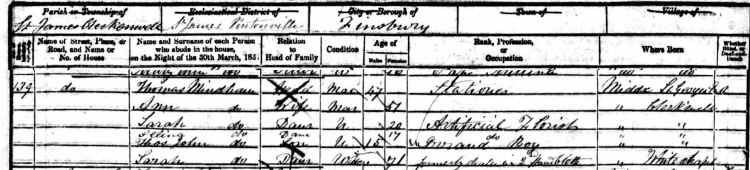 Parish or Township of Ecclesiastical District of City or Borough of Town of Village of
St James Clerkenwell St James Pentonville Finsbury
Name of Street, Place, or Road, and Name or No. of House
Name and Surname of each Person who abode in the house, on the Night of the 30th March, 1851
Relation to Head of Family
Condition
Age of
Males Females
Rank, Profession, or Occupation
Where Born
Whether Blind, or Deaf-and-Dumb
139 do Thomas Mindham Mar 47 Stationer Middx
Ann do Wife Mar 51 " Clerkenwell
Sarah do Daur U 20 Artificial Florist " "
do Daur 17 do " "
Thos John do Son U 15 Errand Boy " "
Sarah do 71 formerly dealer in " Whitechapel